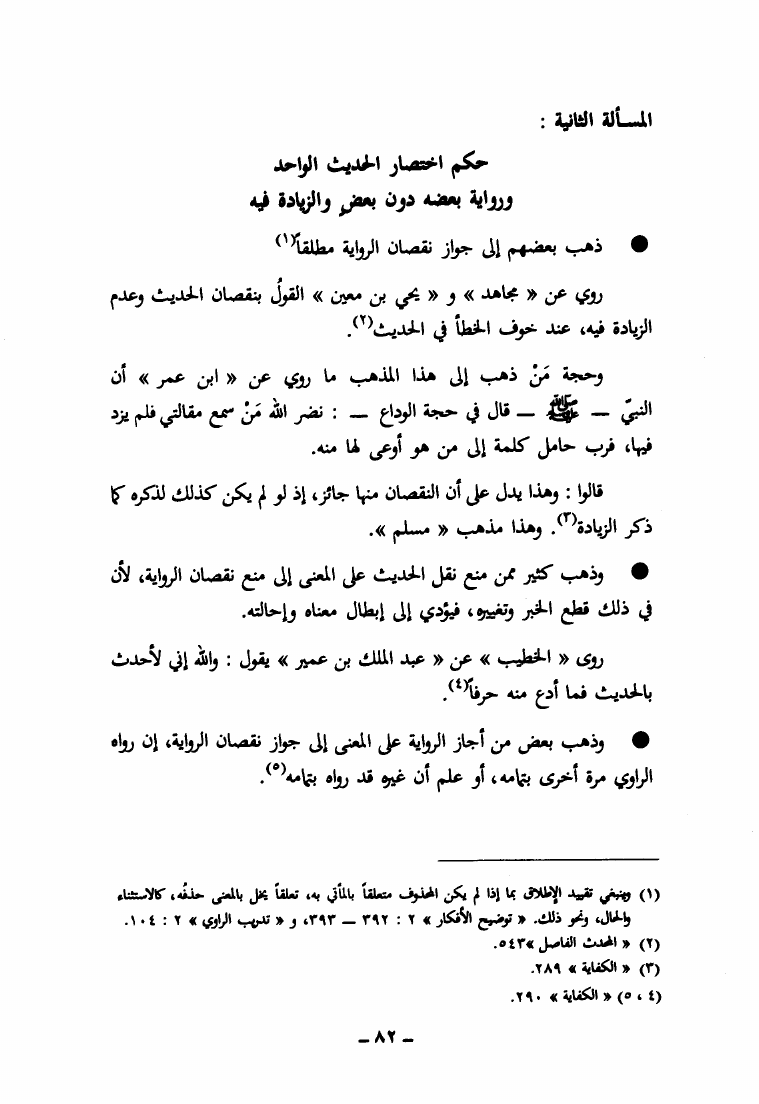 المسألة الثانية :
حكم اختصار الحديث الواحد
ورواية بعضه دون بعضٍ والزيادة فيه
● ذهب بعضهم إلى جواز نقصان الرواية مطلقاً(١)
روي عن « مجاهد » و « يحي بن معين » القولُ بنقصان الحديث وعدم
الزيادة فيه، عند خوف الخطأ في الحديث(٢).
وحجة مَنْ ذهب إلى هذا المذهب ما روي عن « ابن عمر » أن
النبيّ — ﷺ — قال في حجة الوداع — : نضر الله مَنْ سمع مقالتي فلم يزد
فيها، فرب حامل كلمة إلى من هو أوعى لها منه.
قالوا : وهذا يدل على أن النقصان منها جائز، إذ لو لم يكن كذلك لذكره كما
ذكر الزيادة(٣). وهذا مذهب « مسلم ».
● وذهب كثير ممن منع نقل الحديث على المعنى إلى منع نقصان الرواية، لأن
في ذلك قطع الخبر وتغييره، فيؤدي إلى إبطال معناه وإحالته.
روى « الخطيب » عن « عبد الملك بن عمير » يقول : والله إني لأحدث
بالحديث فما أدع منه حرفاً(٤).
● وذهب بعض من أجاز الرواية على المعنى إلى جواز نقصان الرواية، إن رواه
الراوي مرة أخرى بتمامه، أو علم أن غيره قد رواه بتمامه(٥).
(١) وينبغي تقييد الإطلاق بما إذا لم يكن المحذوف متعلقاً بالمأتي به، تعلقاً يخل بالمعنى حذفُه، كالاستثناء
والحال، ونحو ذلك. « توضيح الأفكار » ٢ : ٣٩٢ — ٣٩٣، و « تدريب الراوي » ٢ : ١٠٤.
(٢) « المحدث الفاصل »٥٤٣.
(٣) « الكفاية » ٢٨٩.
(٤ ، ٥) « الكفاية » ٢٩٠.
– ٨٢ –